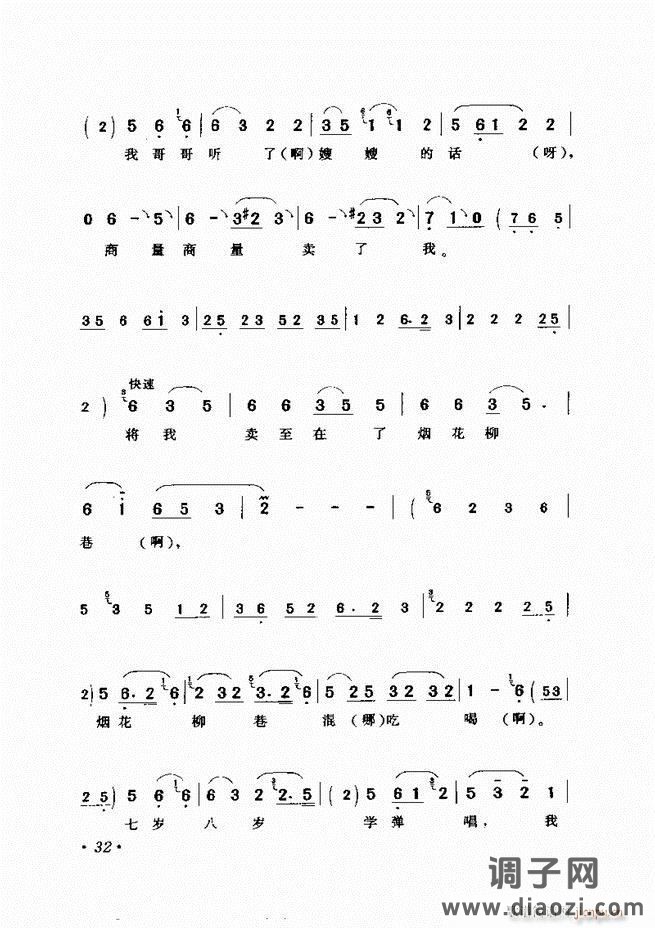 (2) 5 6 6 | 6 3 2 2 | 3 5 1 1 2 | 5 6 1 2 2 |
我哥哥听 了(啊)嫂 嫂 的话 (呀),
0 6 - 5 | 6 - #3 2 3 | 6 - #2 3 2 | 7 1 0 (7 6 5 |
商量商量 卖了我。
3 5 6 6 1 3 | 2 5 2 3 5 2 3 5 | 1 2 6. 2 3 | 2 2 2 2 5 |
快速
2) 6 3 5 | 6 6 3 5 5 | 6 6 3 5. |
将我 卖至在了 烟花柳
6 1 6 5 3 | 2 - - - | (6 2 3 6 |
巷 (啊),
5 3 5 1 2 | 3 6 5 2 6. 2 3 | 2 2 2 2 5 |
2) 5 6. 2 6 | 2 3 2 3. 2 6 | 5 2 5 3 2 3 2 | 1 - 6 (5 3 |
烟花 柳巷 混(哪)吃 喝(啊)。
2 5) 5 6 6 | 6 3 2 2. 5 | (2) 5 6 1 2 | 5 3 2 1 |
七岁八岁 学弹 唱,我
· 32 ·
调子网
www.diaozi.com